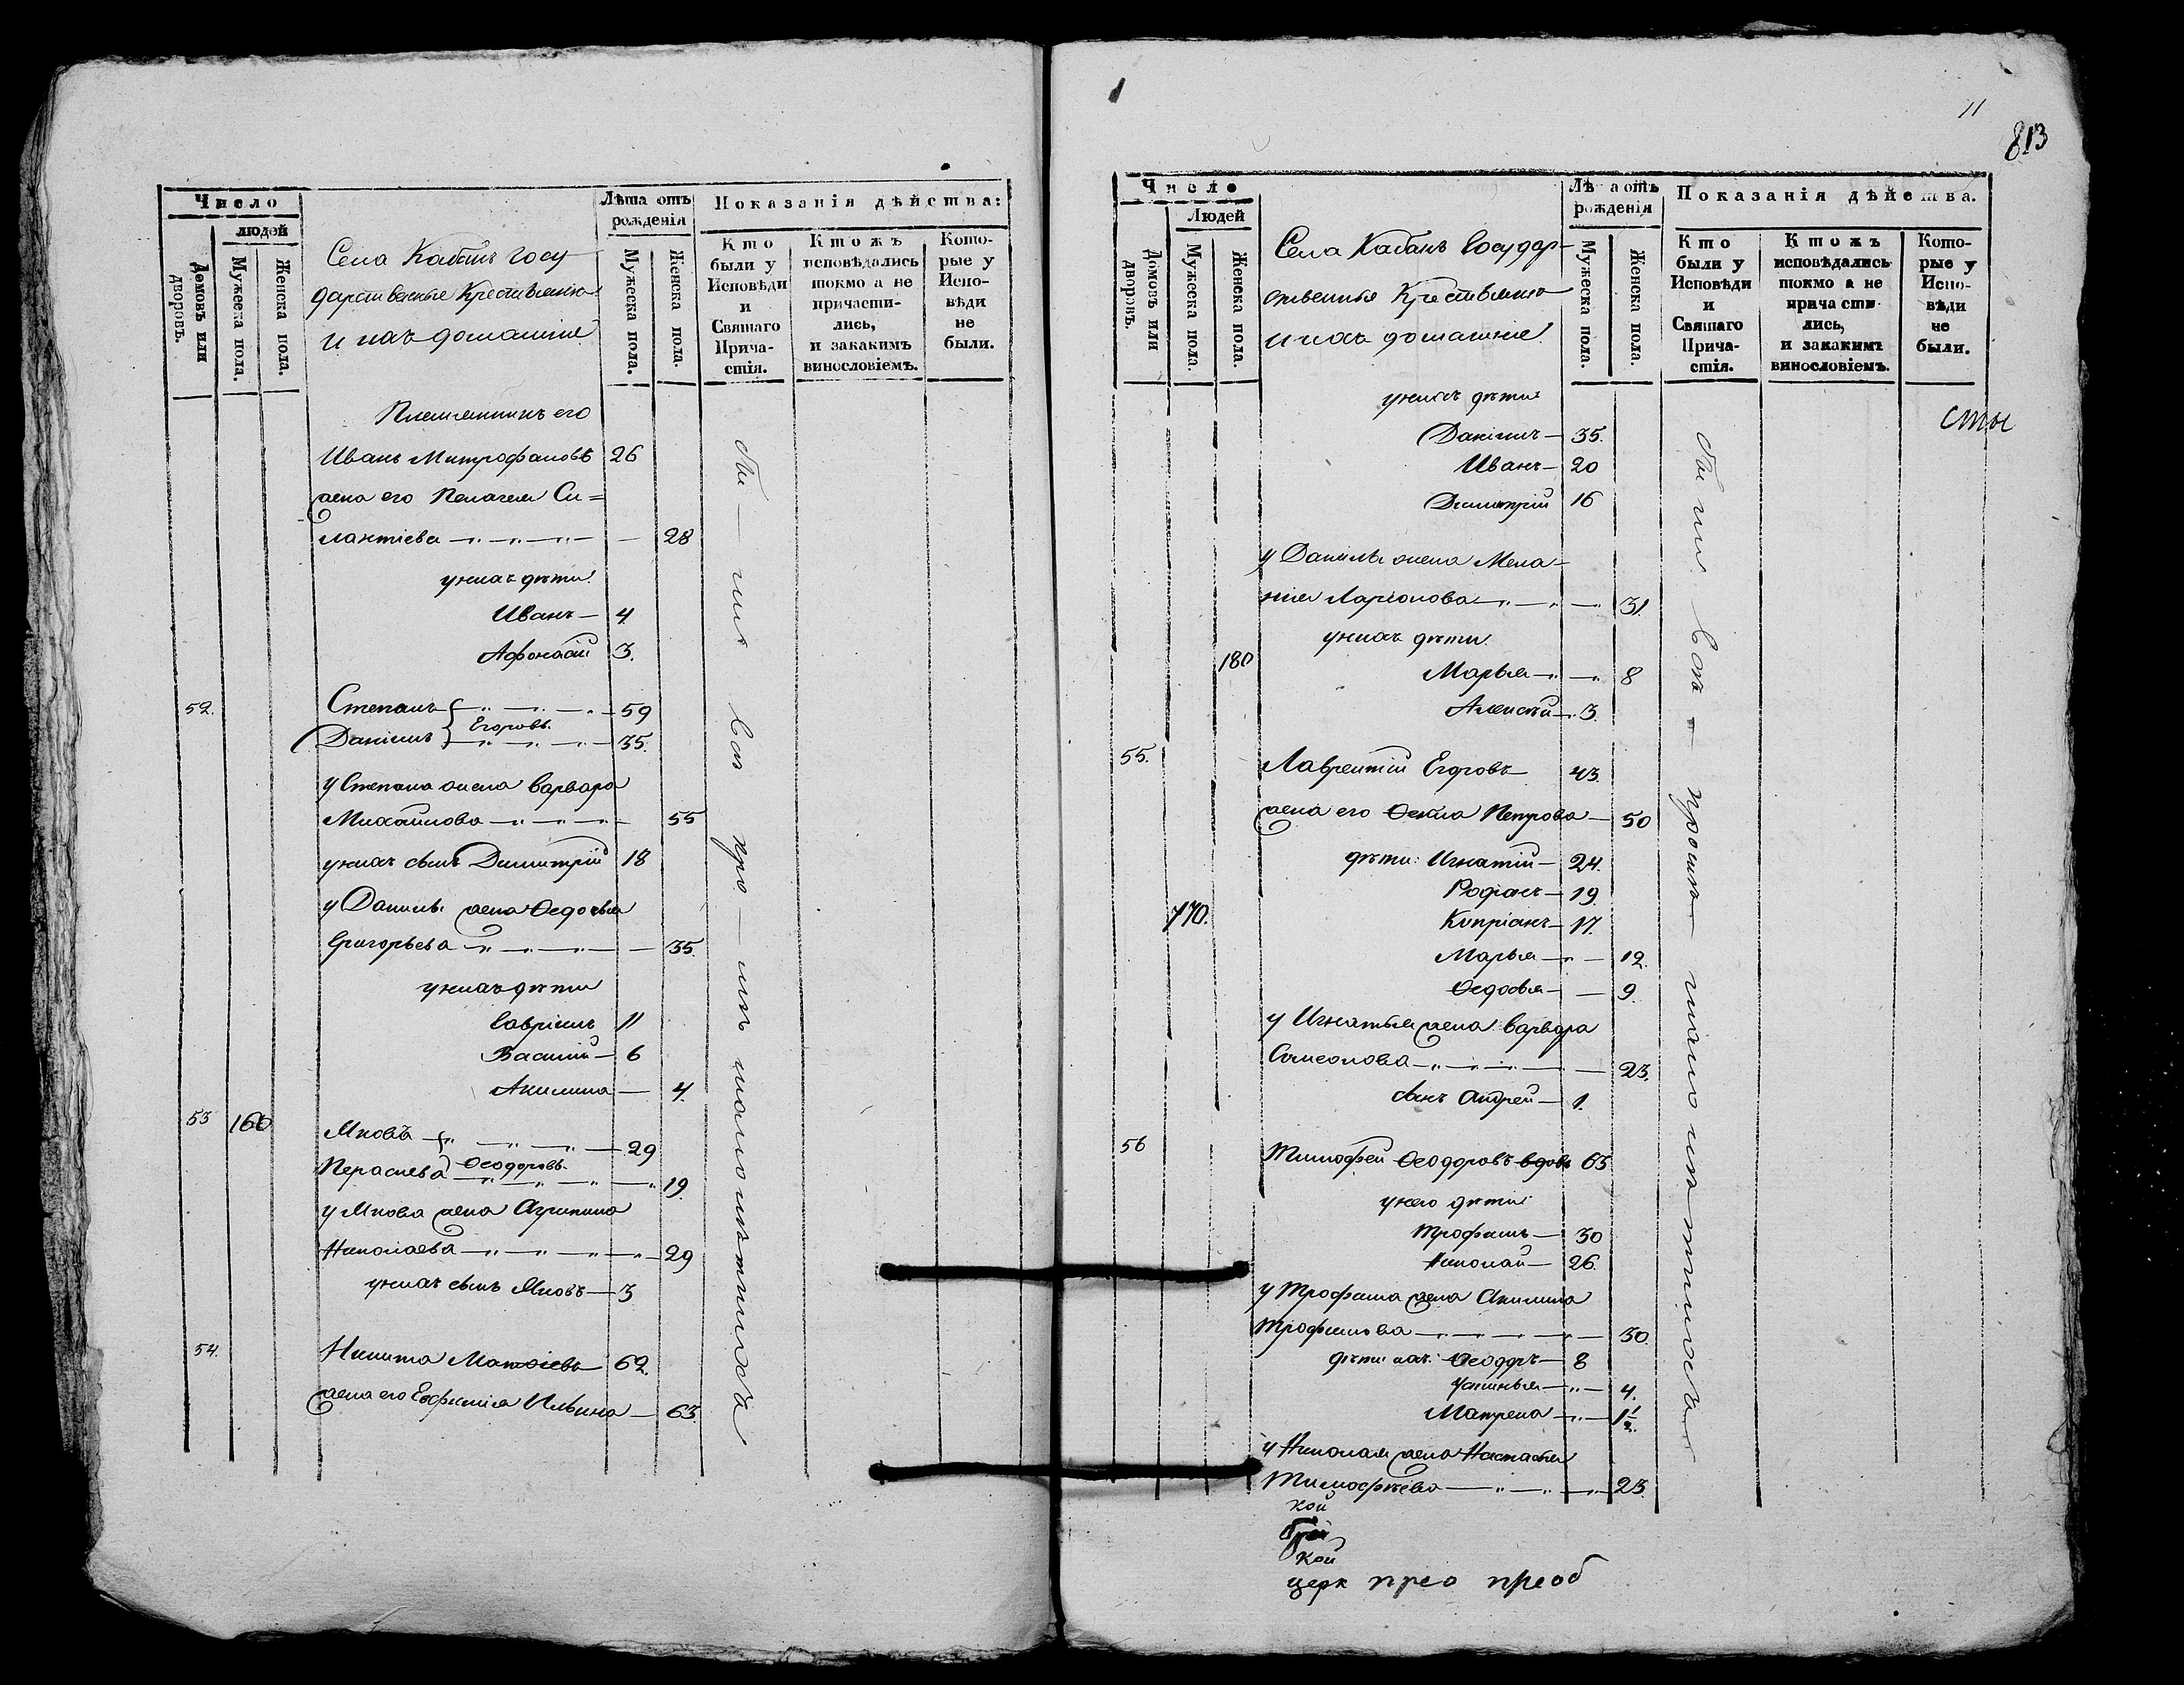 Число
людей
Домовъ или дворовъ.
Мужеска пола.
Женска пола.
Села Кабань Госу
дарственные Крестьяне
и ихъ домашніе
Лѣта отъ рожденія
Мужеска пола.
Женска пола.
Показанія дѣйства:
Кто были у Исповѣди и Святаго Прича-стія.
Ктожъ исповѣдались токмо а не причасти-лись, и закакимъ винословіемъ.
Кото-рые у Испо-вѣди не были.
Племянникъ его
Иванъ Митрофановъ 26
жена его Пелагея Си=
лантіева 28
у нихъ дѣти
Иванъ 4
Афонасій 3.
52. Степанъ 59
Егоровы
Даніилъ 35.
у Степана жена Варвара
Михаилова 55
у нихъ сынъ Димитрій 18
у Данилы жена Ѳедосья
Григорьева 35.
у нихъ дѣти
Гавріилъ 11
Василій 6
Акилина 4.
53 160 Яковъ 29
Ѳеодоровы
Перасцева 19.
у Якова жена Агрипина
Николаева 29
у нихъ сынъ Яковъ 3
54. Никита Матѳіевъ 62.
жена его Евфимія Ильина 63.
11
813
Число
Людей
Домовъ или дворовъ.
Мужеска пола.
Женска пола.
Села Кабань Государ-
ственныя Крестьяне
и ихъ домашніе
Лѣ а отъ рожденія
Мужеска пола.
Женска пола.
Показанія дѣйства.
Кто были у Исповѣди и Святаго Прича-стія.
Ктожъ исповѣдались токмо а не причасти-лись, и закакимъ винословіемъ.
Кото-рые у Испо-вѣди не были.
у нихъ дѣти
Даніилъ 35.
Иванъ 20
Димитрій 16
у Данилы жена Мела-
нія Ларіонова 31.
у нихъ дѣти.
180 Марья 8
Алексѣй 3.
55. Лаврентій Егоровъ 43.
жена его Ѳекла Петрова 50
дѣти: Игнатій 24.
Родіонъ 19.
770. Кипріанъ 17.
Марья 12.
Ѳедосья 9.
у Игнатья жена Варвара
Самсонова 23.
сынъ Андрей 1.
56 Тимофей Ѳеодоровъ вдовъ 65
у него дѣти
Трофимъ 30
Николай 26.
у Трофима жена Акилина
Трофимова 30.
дѣти ихъ: Ѳеодоръ 8
Устинья 4.
Матрена 1 1/2
у Николая жена Настасья
Тимофѣева 23.
кой
кой
церк прео преоб